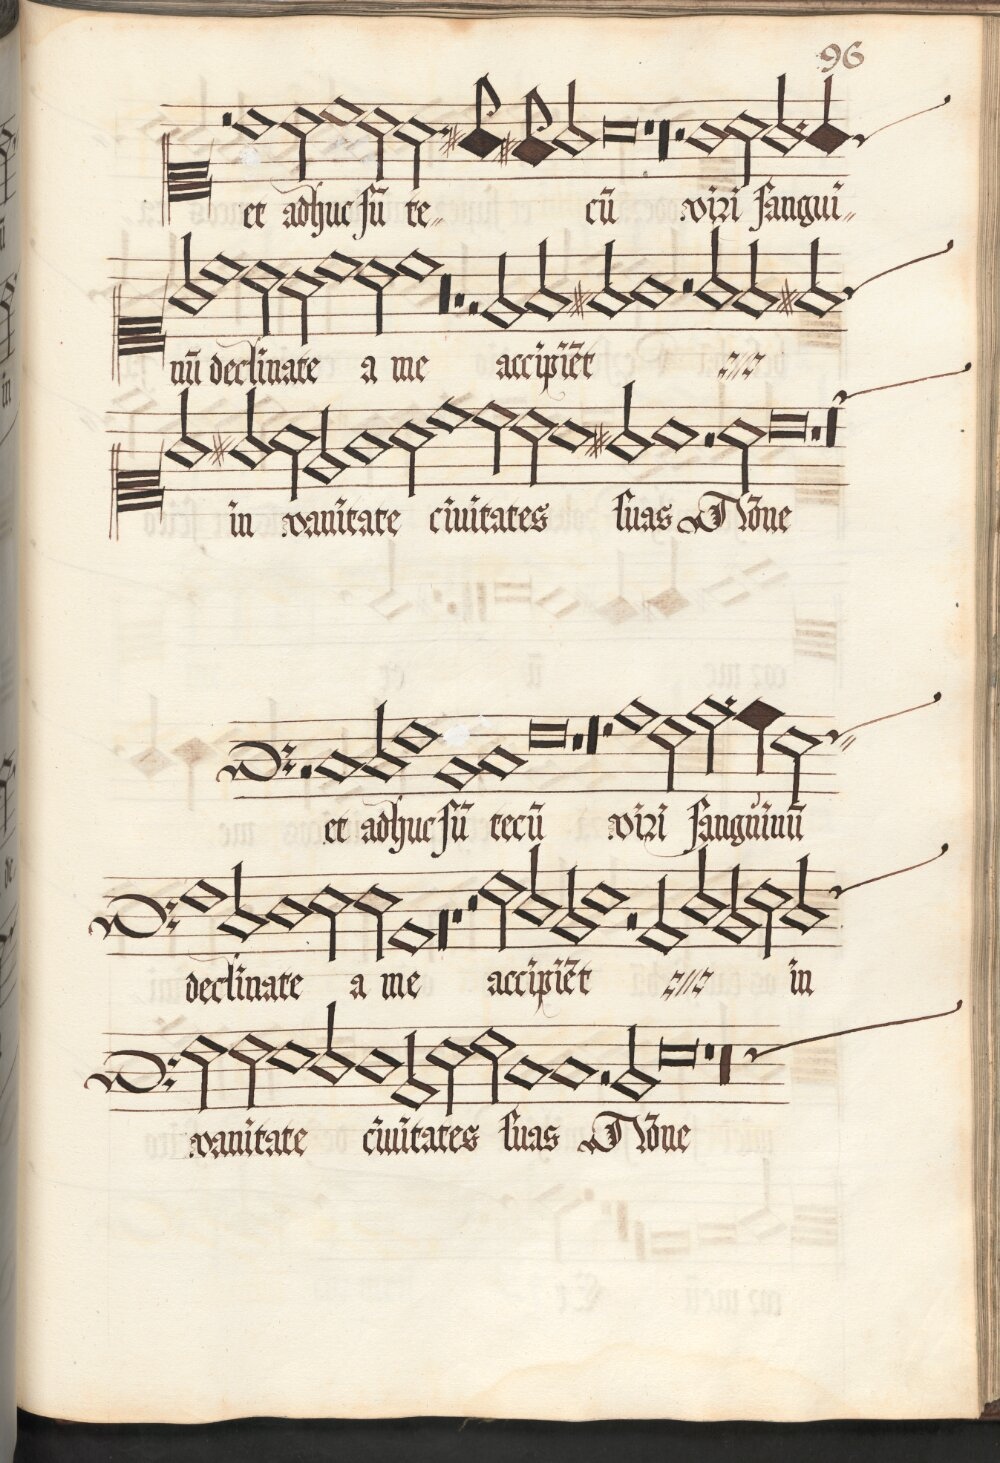 96
et adhuc sū te„ cū viri sangui„
nū declinate a me accipiēt
in vanitate civitates suas None
et adhuc sū tecū viri sanguinū
declinate a me accipiēt in
vanitate civitates suas None